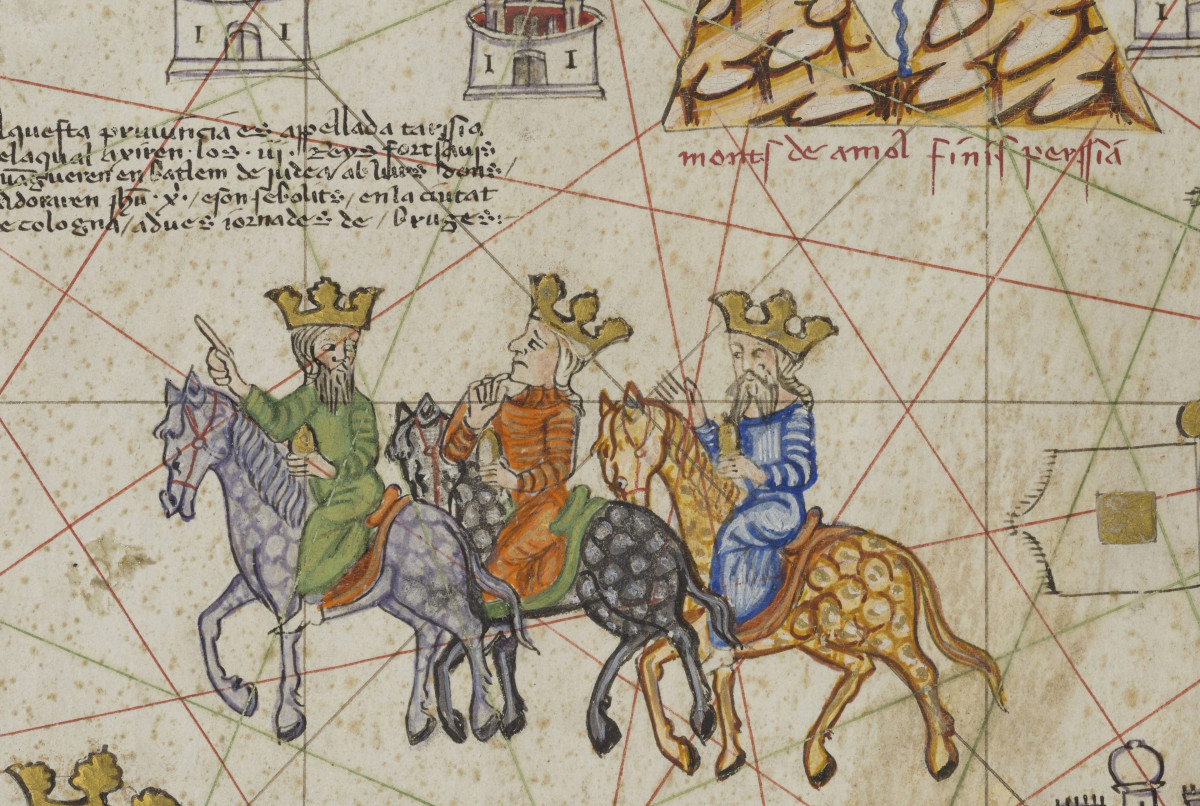 Aquesta provincia es apellada tarssia
elaqual axiren·los·iii·Reys fort sauis
en batlem de judea / ab lurs dons /
adoraren jhu·x·/ eson sebolits / en la ciutat
e cologna / adues iornades de / bruges:
monts de amol finis perssia
I I
I I
I